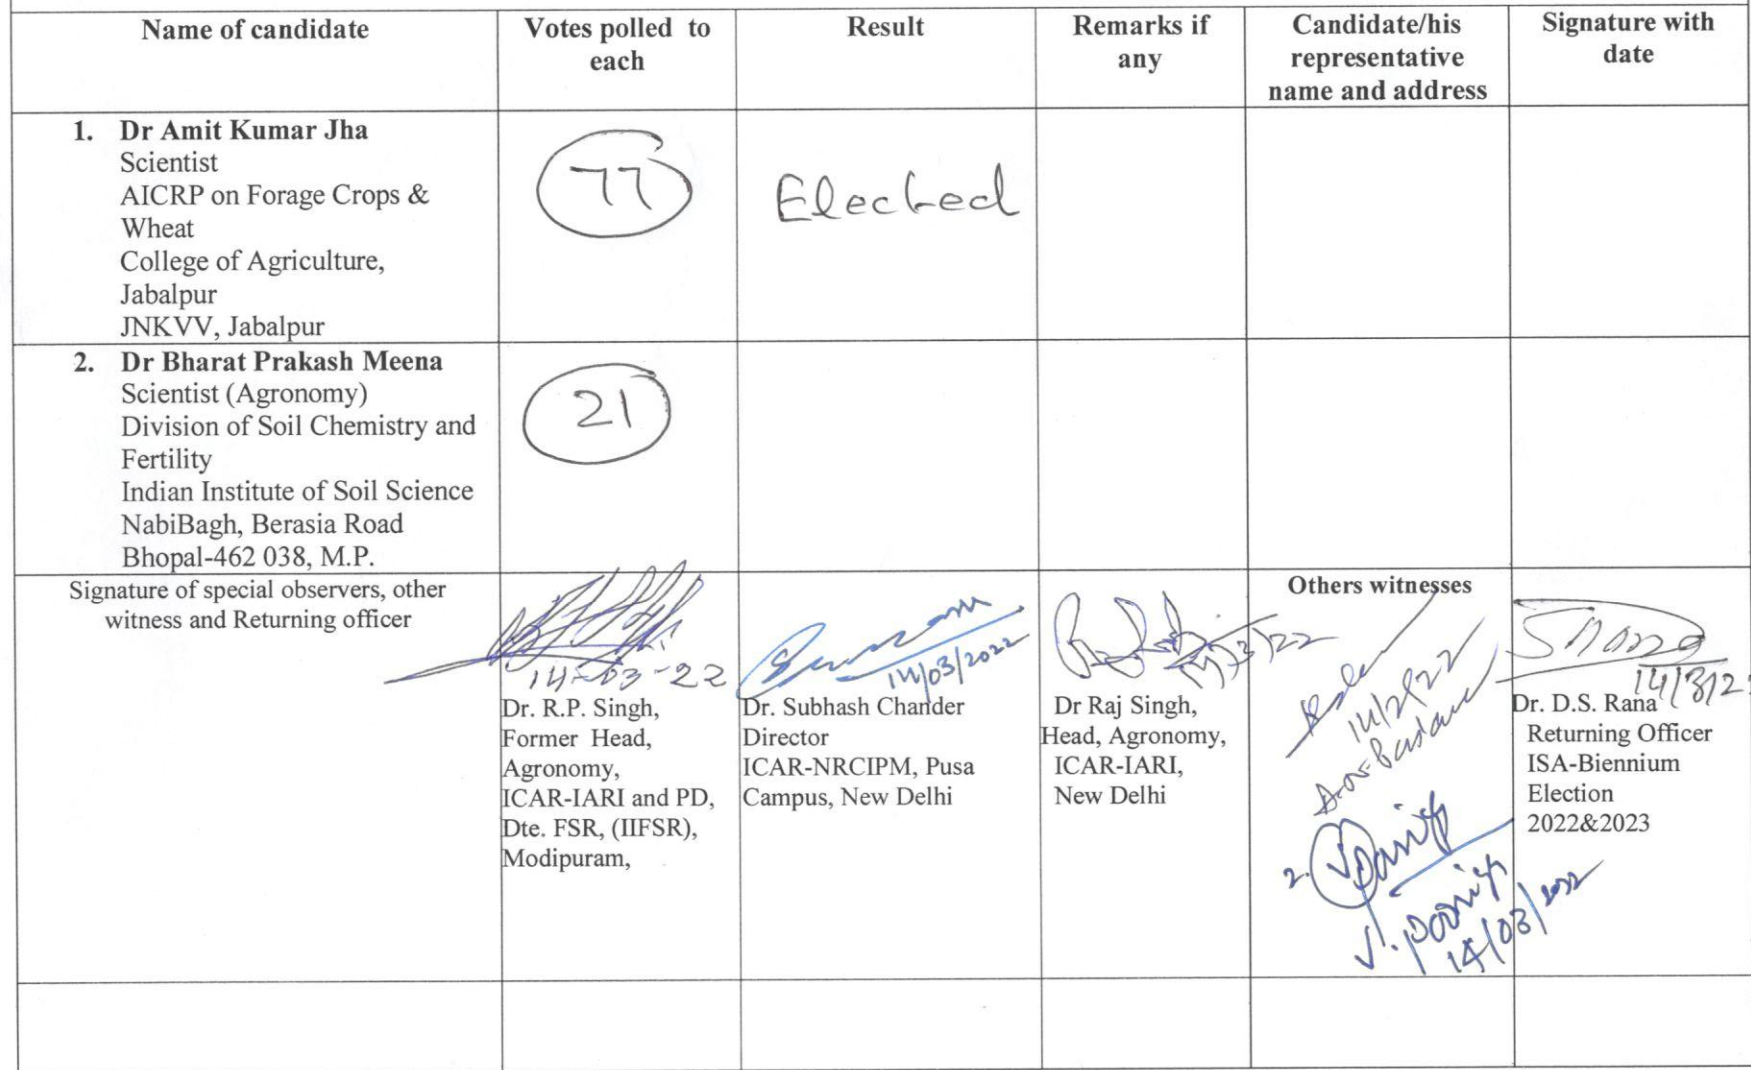 Name of candidate
Votes polled to
each
Result
Remarks if
any
Candidate/his
representative
name and address
Signature with
date
1. Dr Amit Kumar Jha
Scientist
AICRP on Forage Crops &
Wheat
College of Agriculture,
Jabalpur
JNKVV, Jabalpur
77
Elected
2. Dr Bharat Prakash Meena
Scientist (Agronomy)
Division of Soil Chemistry and
Fertility
Indian Institute of Soil Science
NabiBagh, Berasia Road
Bhopal-462 038, M.P.
21
Signature of special observers, other
witness and Returning officer
14-03-22
Dr. R.P. Singh,
Former Head,
Agronomy,
ICAR-IARI and PD,
Dte. FSR, (IIFSR),
Modipuram,
14/03/2022
Dr. Subhash Chander
Director
ICAR-NRCIPM, Pusa
Campus, New Delhi
14/3/22
Dr Raj Singh,
Head, Agronomy,
ICAR-IARI,
New Delhi
Others witnesses
2.
V. Pooniya
14/03/2022
14/3/2
Dr. D.S. Rana
Returning Officer
ISA-Biennium
Election
2022&2023